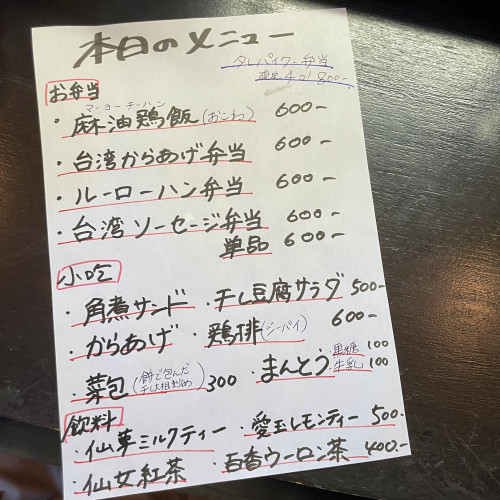 本日のメニュー
タレパイクー弁当
限定4コ! 800-
お弁当
マーヨーチーハン
・麻油鶏飯(おこわ) 600-
・台湾からあげ弁当 600-
・ルーローハン弁当 600-
・台湾ソーセージ弁当 600-
単品 600-
小吃
・角煮サンド ・干し豆腐サラダ 500-
・からあげ ・鶏排(ジーパイ) 600-
・菜包(餅で包んだ 300 ・まんとう 黒糖 100
干し大根炒め) 牛乳 100
飲料
・仙草ミルクティー ・愛玉レモンティー 500-
・仙女紅茶 ・百香ウーロン茶 400.-